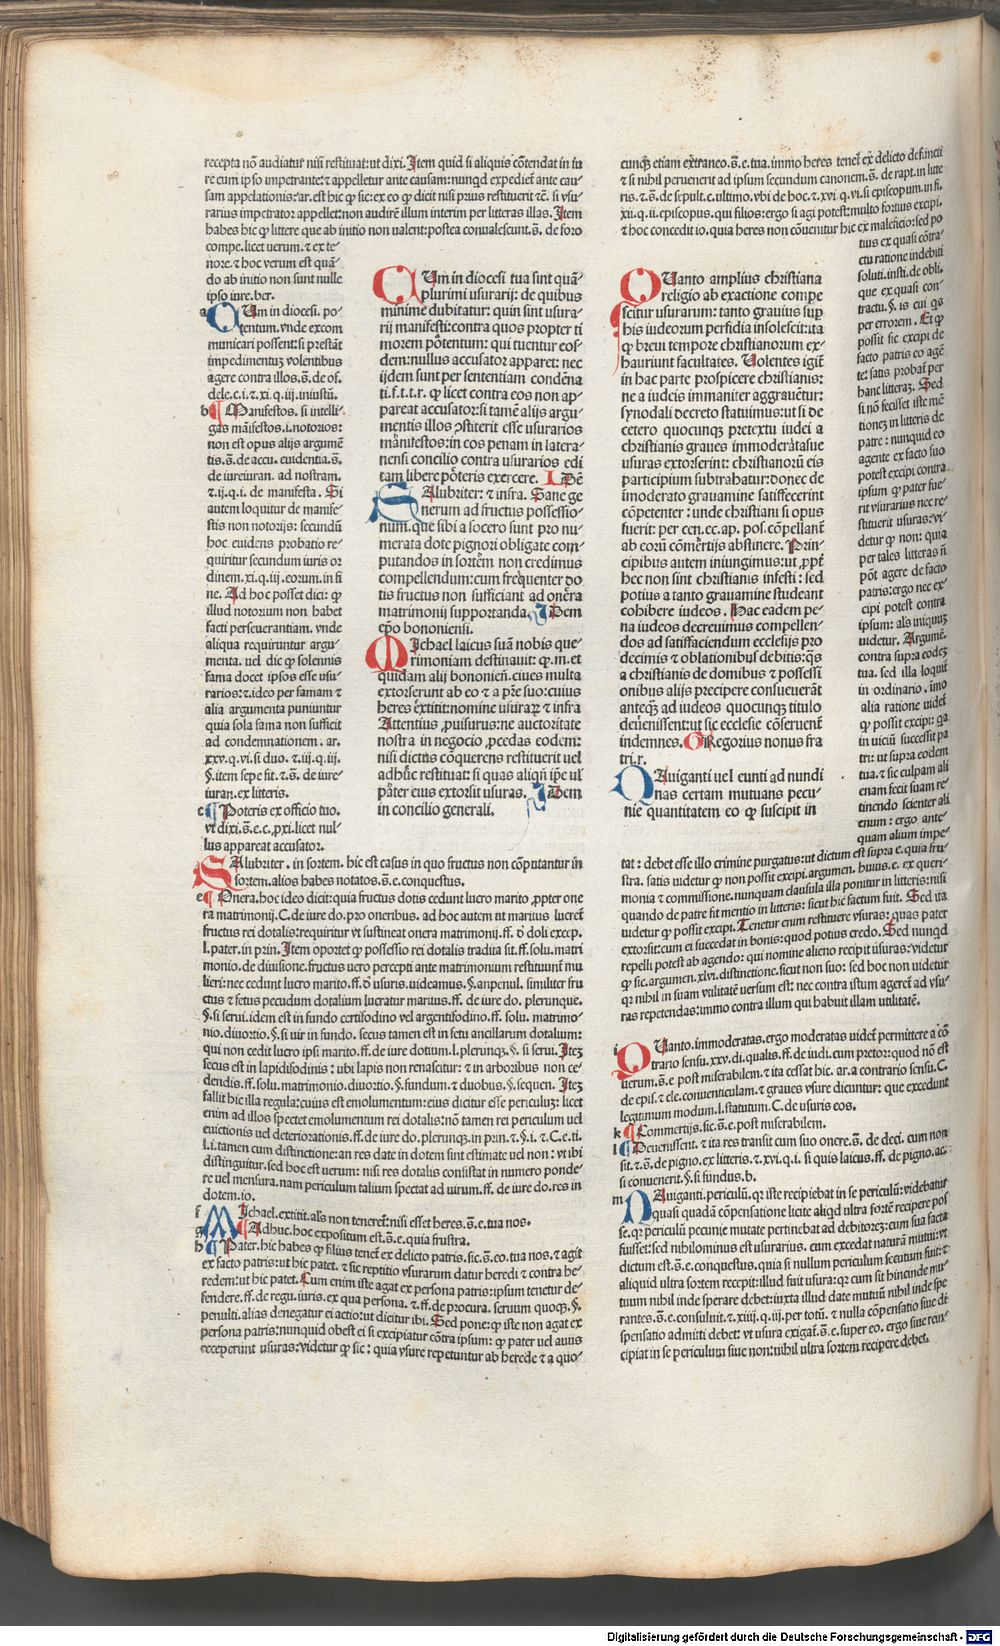 recepta nō audiatur nisi restituat: ut dixi. Item quid si aliquis cōtendat in iu
re cum ipso impetrante: ⁊ appelletur ante causam: nunqd expediet ante cau
sam appelationis: ar. est hic ꝙ sic: ex eo ꝙ dicit nisi prius restituerit ⁊c̄. si vsu
rarius impetrator appellet: non audire illum interim per litteras illas. Item
habes hic ꝙ littere que ab initio non ualent: postea conualescunt. s̄. de foro
compe. licet uerum. ⁊ ex te
nore. ⁊ hoc verum est quā
do ab initio non sunt nulle
ipso iure. ber.
a CUm in diocesi. po
tentum. vnde excom
municari possent: si prestāt
impedimentuꝫ volentibus
agere contra illos. s̄. de of.
dele. c. i. ⁊. xi. q. iij. iniustū.
b Manifestos. si intelli
gas māifestos. i. notorios:
non est opus alijs argumē
tis. s̄. de accu. euidentia. s̄.
de iureiuran. ad nostram.
⁊. ij. q. i. de manifesta. Si
autem loquitur de manife
stis non notorijs: secundū
hoc euidens probatio re
quiritur secundum iuris or
dinem. xi. q. iij. eorum. in fi
ne. Ad hoc posset dici: ꝙ
illud notorium non habet
facti perseuerantiam. vnde
aliqua requiruntur argu
menta. uel dic ꝙ solennis
fama docet ipsos esse usu
rarios: ⁊ ideo per famam ⁊
alia argumenta puniuntur
quia sola fama non sufficit
ad condemnationem. ar.
xxv. q. vi. si duo. ⁊. iij. q. iij.
§. item sepe fit. ⁊. s̄. de iure
iuran. ex litteris.
c Poteris ex officio tuo.
vt dixi. s̄. e. c. ꝓxi. licet nul
lus appareat accusator.
SAlubriter. in sortem. hic est casus in quo fructus non cōputantur in
sortem. alios habes notatos. s̄. e. conquestus.
e Onera. hoc ideo dicit: quia fructus dotis cedunt lucro marito ꝓpter one
ra matrimonij. C. de iure do. pro oneribus. ad hoc autem ut maritus lucret̄
fructus rei dotalis: requiritur vt sustineat onera matrimonij. ff. ō doli excep.
l. pater. in prin. Item oportet ꝙ possessio rei dotalis tradita sit. ff. solu. matri
monio. de diuisione. fructus uero percepti ante matrimonium restituunt̄ mu
lieri: nec cedunt lucro marito. ff. ō usuris. uideamus. §. anpenul. similiter fru
ctus ⁊ fetus pecudum dotalium lucratur maritus. ff. de iure do. plerunque.
§. si serui. idem est in fundo certifodino vel argentifodino. ff. solu. matrimo
nio. diuortio. §. si uir in fundo. secus tamen est in fetu ancillarum dotalium:
qui non cedit lucro ipsi marito. ff. de iure dotium. l. plerunqꝫ. §. si serui. Iteꝫ
secus est in lapidifodinis: ubi lapis non renascitur: ⁊ in arboribus non ce
dendis. ff. solu. matrimonio. diuortio. §. fundum. ⁊ duobus. §. sequen. Iteꝫ
fallit hic illa regula: cuius est emolumentum: eius dicitur esse periculuꝫ: licet
enim ad illos spectet emolumentum rei dotalis: nō tamen rei periculum uel
euictionis uel deteriorationis. ff. de iure do. plerunqꝫ. in prin. ⁊. §. i. ⁊. C. e. ti.
l. i. tamen cum distinctione: an res date in dotem sunt estimate uel non: vt ibi
distinguitur. sed hoc est uerum: nisi res dotalis consistat in numero ponde
re uel mensura. nam periculum talium spectat ad uirum. ff. de iure do. res in
dotem. io.
f MIchael. extitit. al's non teneret̄: nisi esset heres. s̄. e. tua nos.
g Adhuc. hoc expositum est. s̄. e. quia frustra.
h Pater. hic habes ꝙ filius tenet̄ ex delicto patris. sic. s̄. eo. tua nos. ⁊ agit
ex facto patris: ut hic patet. ⁊ sic reptitio vsurarum datur heredi ⁊ contra he
redem: ut hic patet. Cum enim iste agat ex persona patris: ipsum tenetur de
fendere. ff. de regu. iuris. ex qua persona. ⁊. ff. de procura. seruum quoqꝫ. §.
penulti. alias denegatur ei actio: ut dicitur ibi. Sed pone: ꝙ iste non agat ex
persona patris: nunquid obest ei si excipiatur cōtra ipsum: ꝙ pater uel auus
receperunt usuras: videtur ꝙ sic: quia vsure repetuntur ab herede ⁊ a quo
CUm in diocesi tua sint quā
plurimi usurarij: de quibus
minime dubitatur: quin sint usura
rij manifesti: contra quos propter ti
morem pōtentum: qui tuentur eos
dem: nullus accusator apparet: nec
ijdem sunt per sententiam condēna
ti. f. t. t. r. ꝙ licet contra eos non ap
pareat accusator: si tamē alijs argu
mentis illos ꝯstiterit esse vsurarios
mānifestos: in eos penam in latera
nensi concilio contra vsurarios edi
tam libere pōteris exercere. IDē
SAlubriter: ⁊ infra. Sane ge
nerum ad fructus possessio
num. que sibi a socero sunt pro nu
merata dote pignori obligate com
putandos in sortem non credimus
compellendum: cum frequenter do
tis fructus non sufficiant ad onera
matrimonij supportanda. Idem
ep̄o bononiensi.
MIchael laicus suā nobis que
rimoniam destinauit: ꝙ. m. et
quidam alij bononien̄. ciues multa
extorserunt ab eo ⁊ a p̄re suo: cuius
heres extitit: nomine usuraꝝ ⁊ infra
Attentius ꝓuisurus: ne auctoritate
nostra in negocio ꝓcedas eodem:
nisi dictus cōquerens restituerit uel
adhuc restituat: si quas aliqn̄ ip̄e ul
pater eius extorsit usuras. Idem
in concilio generali.
QUanto amplius christiana
religio ab exactione compe
scitur usurarum: tanto grauius suꝑ
his iudeorum perfidia insolescit: ita
ꝙ breui tempore christianorum ex
hauriunt facultates. Uolentes igit̄
in hac parte prospicere christianis:
ne a iudeis immaniter aggrauētur:
synodali decreto statuimus: ut si de
cetero quocunqꝫ pretextu iudei a
christianis graues immoderatasue
usuras extorserint: christianorū eis
participium subtrahatur: donec de
īmoderato grauamine satisfecerint
cōpetenter: unde christiani si opus
fuerit: per cen. ec. ap. pos. cōpellant̄
ab eorū cōmertijs abstinere. Prin
cipibus autem iniungimus: ut ꝓpt̄
hec non sint christianis infesti: sed
potius a tanto grauamine studeant
cohibere iudeos. Hac eadem pe
na iudeos decreuimus compellen
dos ad satisfaciendum ecclesijs pro
decimis ⁊ oblationibus debitis: q̄s
a christianis de domibus ⁊ possessi
onibus alijs precipere consueuerāt
anteqꝫ ad iudeos quocunqꝫ titulo
deuenissent: ut sic ecclesie cōseruent̄
indemnes. GRegorius nonus fra
tri. r.
NAuiganti uel eunti ad nundi
nas certam mutuans pecu
nie quantitatem eo ꝙ suscipit in
cunqꝫ etiam extraneo. s̄. e. tua. immo heres tenet̄ ex delicto defuncti
⁊ si nihil peruenerit ad ipsum secundum canonem. s̄. de rapt. in litte
ris. ⁊. s̄. de sepult. c. ultimo. vbi de hoc. ⁊. xvi. q. vi. si episcopum. in fi.
xij. q. ij. episcopus. qui filios: ergo si agi potest: multo fortius excipi.
⁊ hoc concedit io. quia heres non cōuenitur hic ex maleficio: sed po
tius ex quasi cōtra
ctu ratione indebiti
soluti. insti. de obli.
que ex quasi con
tractu. §. is cui qs
per errorem. Et ꝙ
possit sic excipi de
facto patris eo agē
te: satis probat̄ per
hanc litteraꝫ. Sed
si nō fecisset iste mē
tioneꝫ in litteris de
patre: nunquid eo
agente ex facto suo
potest excipi contra
ipsum ꝙ pater fue
rit vsurarius nec re
stituerit usuras: vi
detur ꝙ non: quia
per tales litteras n̄
pōt agere de facto
patris: ergo nec ex
cipi potest contra
ipsum: als iniquuꝫ
uidetur. Argumē.
contra supra eodeꝫ
tua. sed illa loquit̄
in ordinario. imo
alia ratione uidet̄
ꝙ possit excipi: qa
in uiciū succēssit pa
tri: ut supra eodem
tua. ⁊ sic culpam ali
enam fecit suam re
tinendo scienter ali
enum: ergo ante
quam alium impe
tat: debet esse illo crimine purgatus: ut dictum est supra e. quia fru
stra. satis uidetur ꝙ non possit excipi. argumen. huius. e. ex queri
monia ⁊ commissione. nunquam clausula illa ponitur in litteris: nisi
quando de patre fit mentio in litteris: sicut hic factum fuit. Sed ita
uidetur ꝙ possit excipi. Tenetur enim restituere vsuras: quas pater
extorsit: cum ei succedat in bonis: quod potius credo. Sed nunqd
repelli potest ab agendo: qui nomine alieno recipit usuras: videtur
ꝙ sic. argumen. xlvi. distinctione. sicut non suo: sed hoc non uidetur
qꝛ nihil in suam vtilitatē uersum est: nec contra istum ageret̄ ad vsu
ras repetendas: immo contra illum qui habuit illam utilitatē.
i QUanto. immoderatas. ergo moderatas uidet̄ permittere a cō
trario sensu. xxv. di. qualis. ff. de iudi. cum pretor: quod nō est
uerum. s̄. e. post miserabilem. ⁊ ita cessat hic. ar. a contrario sensu. C.
de epis. ⁊ cle. conuenticulam. ⁊ graues vsure dicuntur: que excedunt
legitimum modum. l. statutum. C. de usuris eos.
k Commertijs. sic. s̄. e. post miserabilem.
l Deuenissent. ⁊ ita res transit cum suo onere. s̄. de deci. cum non
sit. ⁊. s̄. de pigno. ex litteris. ⁊. xvi. q. i. si quis laicus. ff. de pigno. ac.
si conuenerit. §. si fundus. b.
m NAuiganti. periculū. qꝛ iste recipiebat in se periculū: videbatur
quasi quadā cōpensatione licite aliqd ultra sortē recipere pos
se. qꝛ periculū pecunie mutate pertinebat ad debitoreꝫ: cum sua facta
fuisset: sed nihilominus est usurarius. cum excedat naturā mutui: vt
dictum est. s̄. e. conquestus. quia si nullum periculum secutum fuit: ⁊
aliquid ultra sortem recepit: illud fuit usura: qꝛ cum sit hincinde mu
tuum nihil inde sperare debet: iuxta illud date mutuū nihil inde spe
rantes. s̄. e. consuluit. ⁊. xiiij. q. iij. per totū. ⁊ nulla cōpensatio siue di
spensatio admitti debet: vt usura exigat̄. s̄. e. super eo. ergo siue rem
cipiat in se periculum siue non: nihil ultra sortem recipere debet.
Digitalisierung gefördert durch die Deutsche Forschungsgemeinschaft - DFG